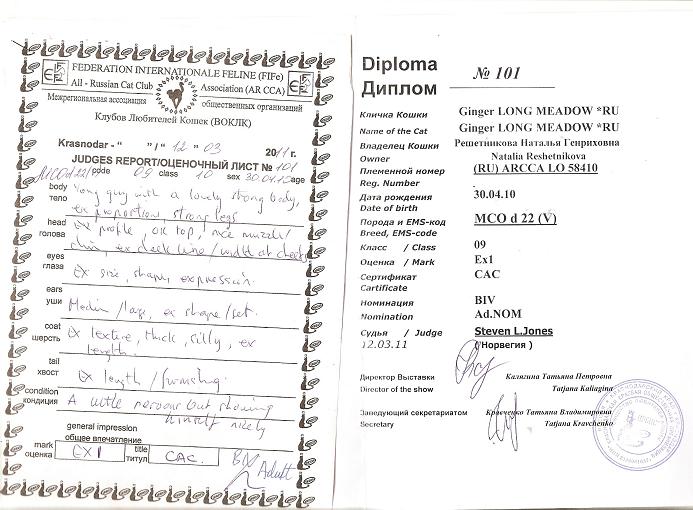 FEDERATION INTERNATIONALE FELINE (FIFe)
All - Russian Cat Club Association (AR CCA)
Межрегиональная ассоциация общественных организаций
Клубов Любителей Кошек (ВОКЛК)
Krasnodar - " " / " 12 " 03 2011 г.
JUDGES REPORT/ОЦЕНОЧНЫЙ ЛИСТ № 101
MCO d 22/ code 09 class 10 sex 30.04.10 age
body Young guy with a lovely strong body,
тело ex proportion, strong legs
head Ex profile, ok top, nice muzzle/
голова chin, ex cheek line / width at cheeks
eyes
глаза Ex size, shape, expression.
ears
уши Medium/large, ex shape/set.
coat Ex texture, thick, silky, ex
шерсть length.
tail
хвост Ex length/furnishing.
condition
кондиция A little nervous but showing
himself nicely
general impression
общее впечатление
mark
оценка EX1 title
титул CAC. BIV Adult
Diploma
Диплом № 101
Кличка Кошки Ginger LONG MEADOW *RU
Name of the Cat Ginger LONG MEADOW *RU
Владелец Кошки Решетникова Наталья Генриховна
Owner Natalia Reshetnikova
Племенной номер (RU) ARCCA LO 58410
Reg. Number
Дата рождения 30.04.10
Date of birth
Порода и EMS-код MCO d 22 (V)
Breed, EMS-code
Класс / Class 09
Оценка / Mark Ex1
Сертификат CAC
Cartificate
Номинация BIV
Nomination Ad.NOM
Судья / Judge Steven L.Jones
12.03.11 (Норвегия )
Директор Выставки Калягина Татьяна Петровна
Director of the show Tatjana Kaliagina
Заведующий секретариатом Кравченко Татьяна Владимировна
Secretary Tatjana Kravchenko